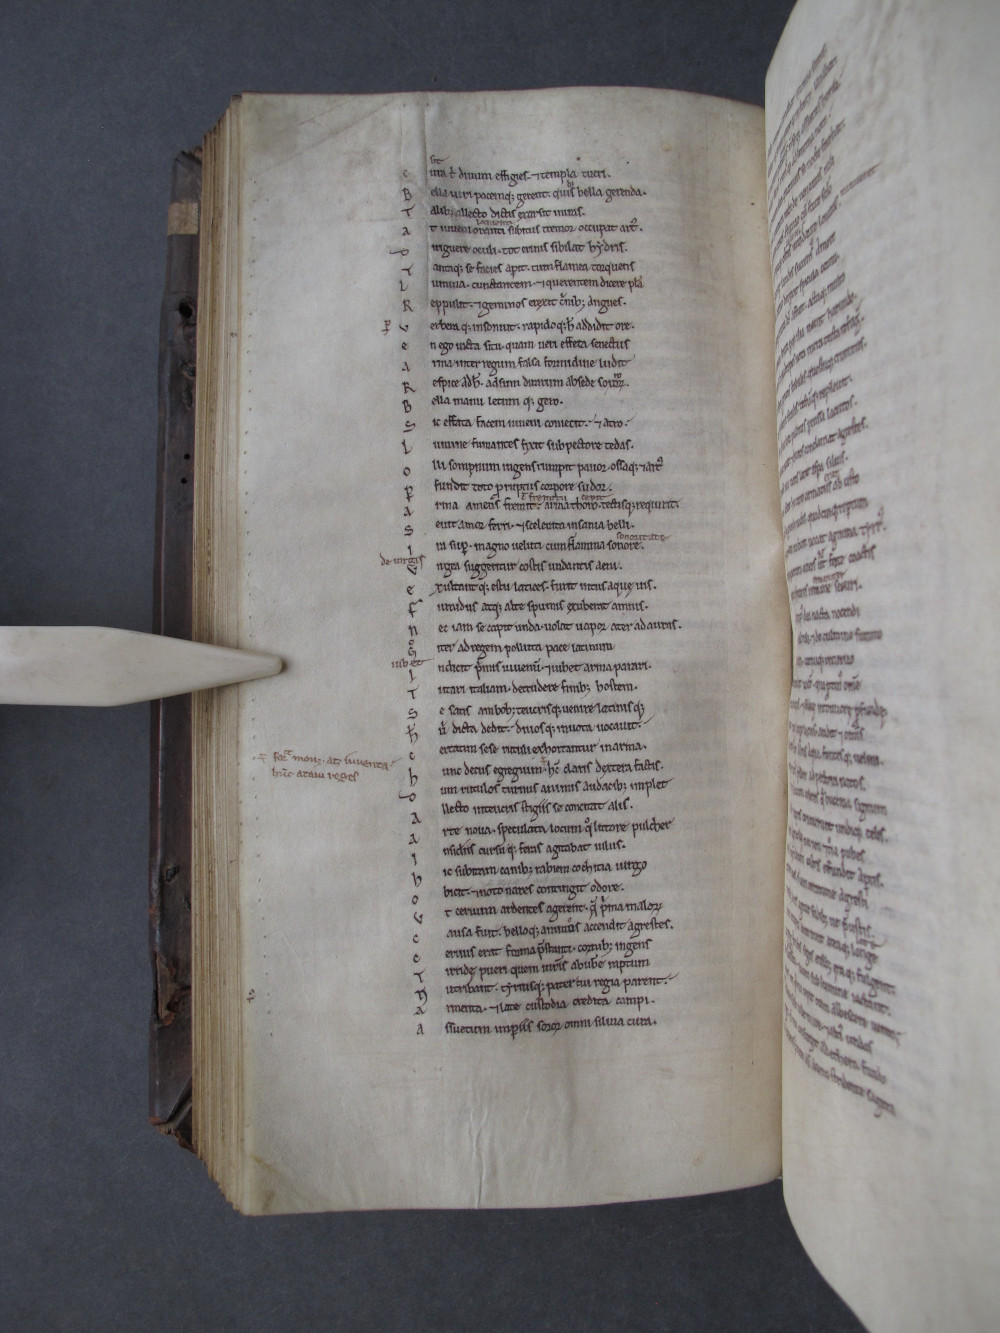 sit
Cura t̄ diuum effigies. ⁊ templa tueri.
Bella uiri pacemq; gerent. quis bella gerenda.
Talib; allecto dictis exarsit iniras.
At iuueni oranti subitus tremor occupat art᷒.
Diriguere oculi. tot erinis sibilat hydris.
Tantaq; se facies apit. tum flamea torquens
Lumina. cunctantem. ⁊ querentem dicere pl̄a
Reppulit. ⁊ geminos erexit c̄nib; angues.
Verbera q; insonuit. rapidoq; h̄ addidit ore.
En ego uicta situ. quam ueri effeta senectus
Arma inter regum falsa formidine ludit
Respice adh̄. adsum dirarum absede soror̄.
Bella manu letum q; gero.
Sic effata facem iuueni coniecit. ⁊ atro.
Lumine fumantes fixit subpectore tedas.
Olli sompnum ingens rumpit pauor. ossaq; ⁊ art᷒
Ꝑfundit toto p̄ruptus corpore sudor.
Arma amens fremit. arma thoro. tectisq; requirit
Seuit amor ferri. ⁊ scelerata insania belli.
sonoritate
Ira suꝑ. magno ueluti cum flamma sonore.
de uirgis
Virgea suggeritur costis undantis aeni.
Exultant q; estu latices. furit intus aque uis.
Fumidus atq; alte spumis exuberat amnis.
Nec iam se capit unda. uolat uapor ater ad auras.
iter ad regem polluta pace latinum
iubet
Indicit p̄mis iuuenū. ⁊ iubet arma parari.
Tutari italiam. detrudere finib; hostem.
Se satis ambob; teucrisq; uenire latinisq;
H̄ u̅ dicta dedit. diuosq; inuota uocauit.
Certatim sese rutuli exhortantur inarma.
Hunc decus egregium. h̄c claris dextera factis.
Dum rutulos turnus animis audacib; implet
Allecto inteucris stigiis se concitat alis.
Arte noua. speculata locum q̊ littore pulcher
Insidiis cursu q; feras agitabat iulus.
Hic subitam canib; rabiem cochitia uirgo
Obicit. ⁊ noto nares contingit odore.
Vt ceruum ardentes agerent. q̄ p̄ma maloꝝ
Causa fuit. belloq; animos accendit agrestes.
Ceruus erat forma p̄stanti. cornib; ingens
Tirride pueri quem mr̄is abube raptum
Nutribant. tyrrusq; pater cui regia parent
Armenta. ⁊ late custodia credita campi.
Assuetum imp̄iis soror omni siluia cura.